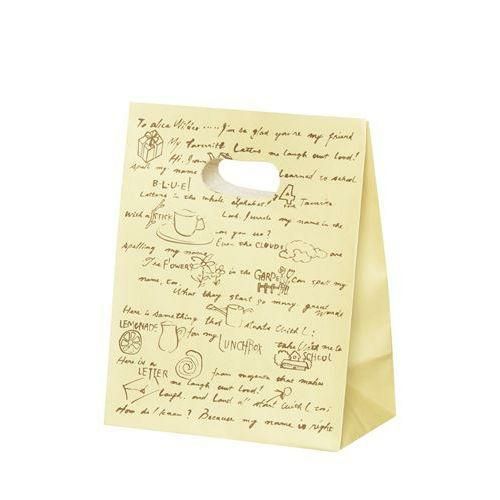 To Alice Wilder.....I'm so glad you're my friend
My favorite Letters me laugh out loud!
Hi, I'm
Spell my name Learned to school
BLUE! 4 Favorite
Letters in the whole alphabet!
With a STICK Look, I wrote my name in the
or you see?
Even the CLOUDS are
spelling my name
The FLOWERS in the GARDEN Can spell my
name, too. What they start so many great words
Here is something that starts With L:
LEMONADE for my LUNCHBOX take With me to SCHOOL
Here is a LETTER from magenta that makes
me laugh out loud!
Laugh, and Loud all start With L, too!
How do I know? Because my name is right